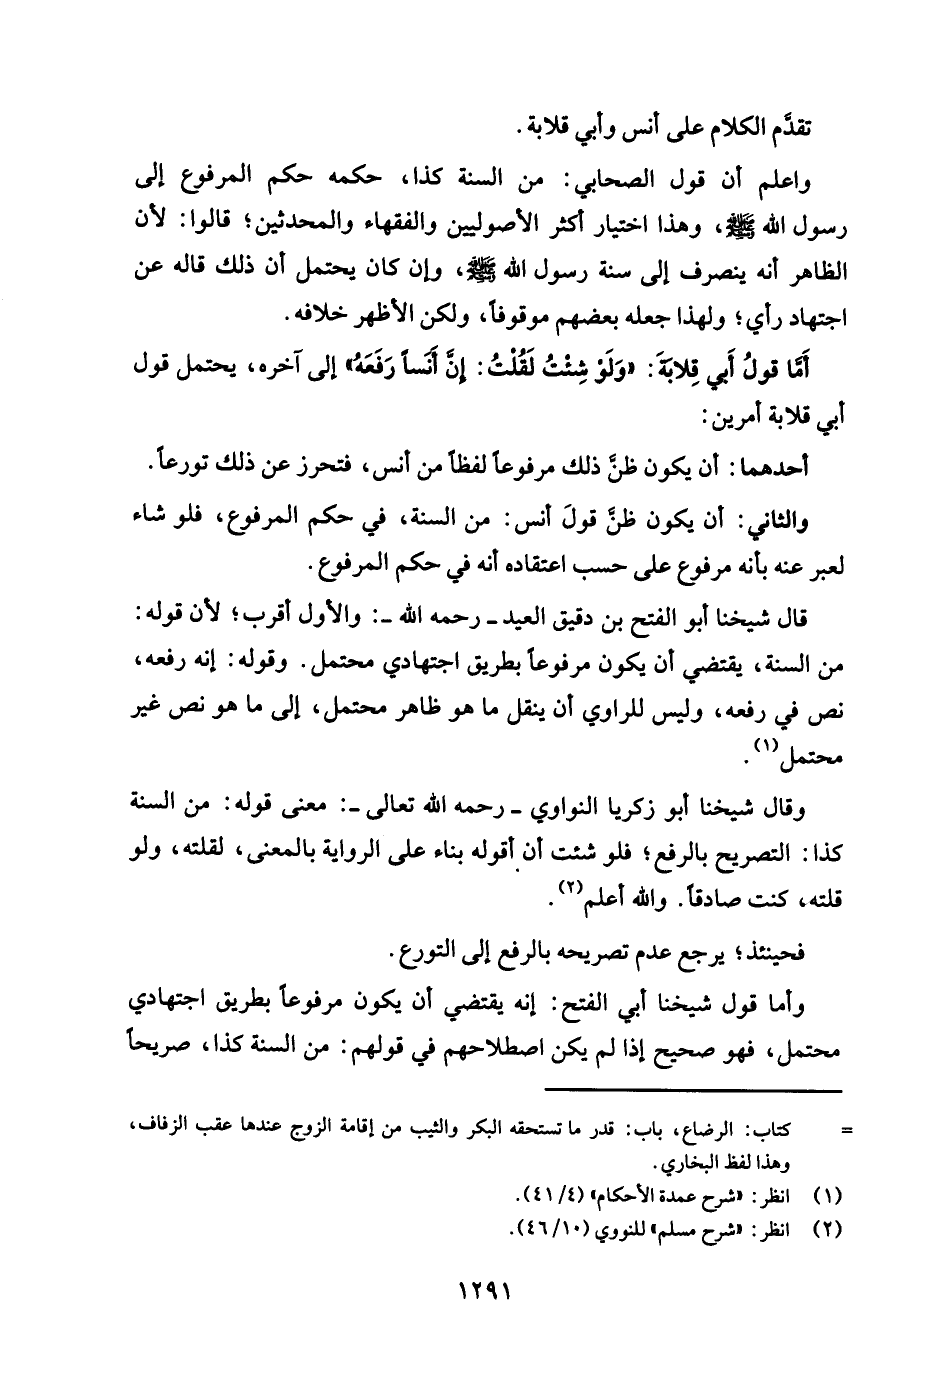 تقدَّم الكلام على أنس وأبي قلابة.
واعلم أن قول الصحابي: من السنة كذا، حكمه حكم المرفوع إلى
رسول الله ﷺ، وهذا اختيار أكثر الأصوليين والفقهاء والمحدثين؛ قالوا: لأن
الظاهر أنه ينصرف إلى سنة رسول الله ﷺ، وإن كان يحتمل أن ذلك قاله عن
اجتهاد رأي؛ ولهذا جعله بعضهم موقوفاً، ولكن الأظهر خلافه.
أمَّا قولُ أَبي قِلابَةَ: «وَلَوْ شِئْتُ لَقُلْتُ: إنَّ أَنَساً رَفَعَهُ» إلى آخره، يحتمل قول
أبي قلابة أمرين:
أحدهما: أن يكون ظنَّ ذلك مرفوعاً لفظاً من أنس، فتحرز عن ذلك تورعاً.
والثاني: أن يكون ظنَّ قولَ أنس: من السنة، في حكم المرفوع، فلو شاء
لعبر عنه بأنه مرفوع على حسب اعتقاده أنه في حكم المرفوع.
قال شيخنا أبو الفتح بن دقيق العيد ـ رحمه الله ـ: والأول أقرب؛ لأن قوله:
من السنة، يقتضي أن يكون مرفوعاً بطريق اجتهادي محتمل. وقوله: إنه رفعه،
نص في رفعه، وليس للراوي أن ينقل ما هو ظاهر محتمل، إلى ما هو نص غير
محتمل(١).
وقال شيخنا أبو زكريا النواوي ـ رحمه الله تعالى ـ: معنى قوله: من السنة
كذا: التصريح بالرفع؛ فلو شئت أن أقوله بناء على الرواية بالمعنى، لقلته، ولو
قلته، كنت صادقاً. والله أعلم(٢).
فحينئذ؛ يرجع عدم تصريحه بالرفع إلى التورع.
وأما قول شيخنا أبي الفتح: إنه يقتضي أن يكون مرفوعاً بطريق اجتهادي
محتمل، فهو صحيح إذا لم يكن اصطلاحهم في قولهم: من السنة كذا، صريحاً
= كتاب: الرضاع، باب: قدر ما تستحقه البكر والثيب من إقامة الزوج عندها عقب الزفاف،
وهذا لفظ البخاري.
(١) انظر: «شرح عمدة الأحكام» (٤/ ٤١).
(٢) انظر: «شرح مسلم» للنووي (١٠/ ٤٦).
١٢٩١